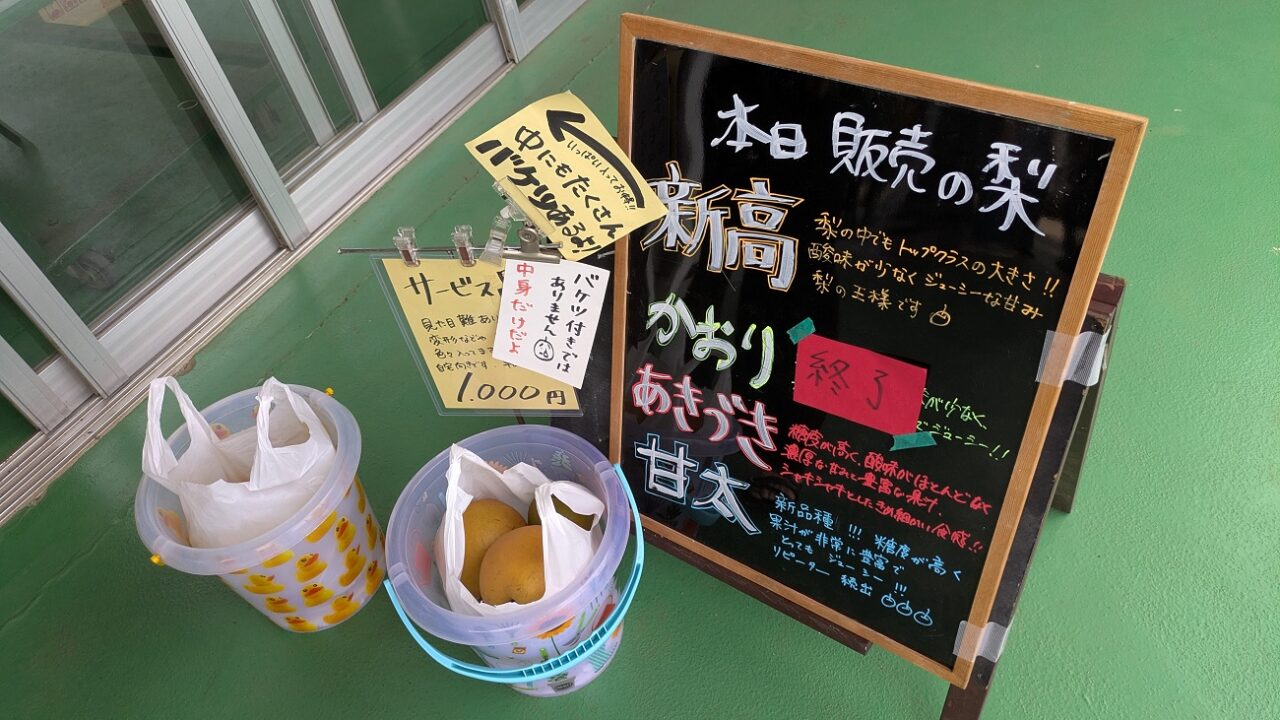 いっぱい入ってお得!!
中にもたくさん
バケツあるよ!
サービス
見た目難あり
変形などの
1.000円
バケツ付きでは
ありません
中身だけだよ
本日 販売の梨
新高
梨の中でもトップクラスの大きさ!!
酸味が少なくジューシーな甘み
梨の王様です
かおり
終了
が少なく
でジューシー!!
あきづき
糖度が高く、酸味がほとんどなく
濃厚な甘みと豊富な果汁.
シャキシャキとしたきめ細かい食感!!
甘太
新品種!!! 糖度が高く
果汁が非常に豊富で
とってもジューシー!!!
リピーター 続出